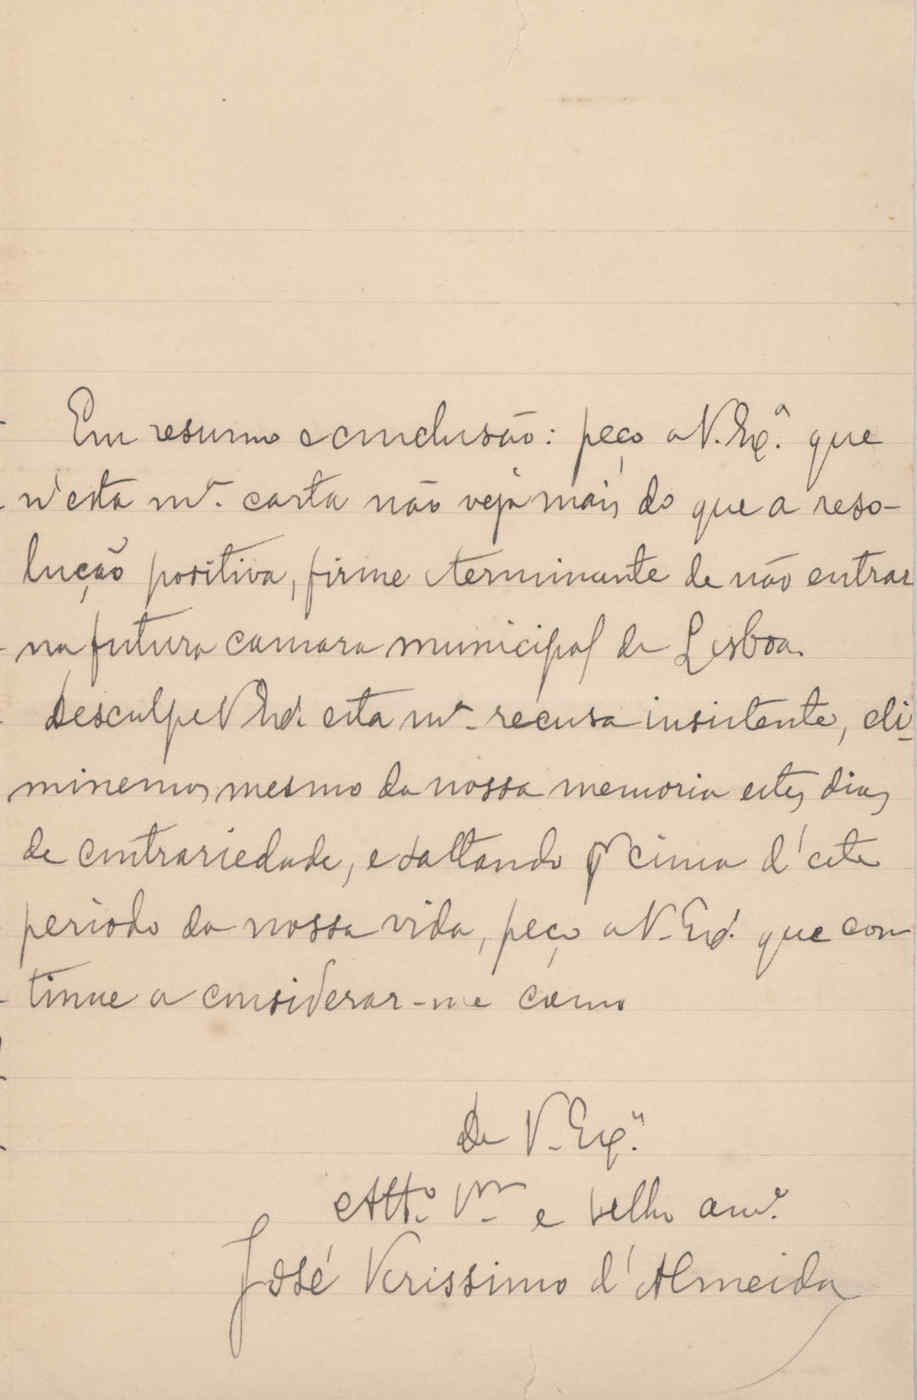 Em resumo e conclusão: peço a V. Exª. que
n'esta mª. carta não veja mais do que a reso-
lução positiva, firme e terminante de não entrar
na futura camara municipal de Lisboa.
Desculpe V. Exª. esta mª. recusa insistente, eli-
minemos mesmo da nossa memoria estes dias
de contrariedade, e saltando pr cima d'este
periodo da nossa vida, peço a V. Exª. que con
tinue a considerar-me como
De V. Exª.
Attº. Vr. e velho amº.
José Verissimo d'Almeida